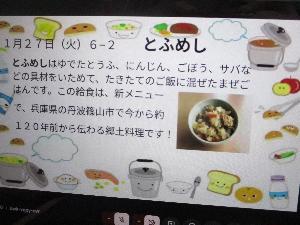 1月27日（火）6−2　とふめし
とふめしはゆでたとうふ、にんじん、ごぼう、サバな
どの具材をいためて、たきたてのご飯に混ぜたまぜご
はんです。この給食は、新メニュー
で、兵庫県の丹波篠山市で今から約
120年前から伝わる郷土料理です！